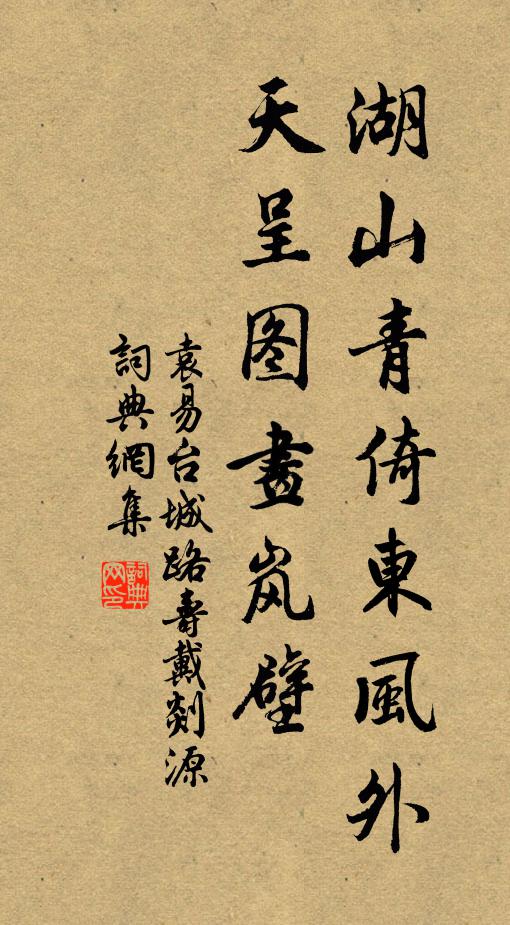 湖山青倚東風外
天呈图畫岚壁
袁易台城路壽戴剡源
詞典網集
詞典网印